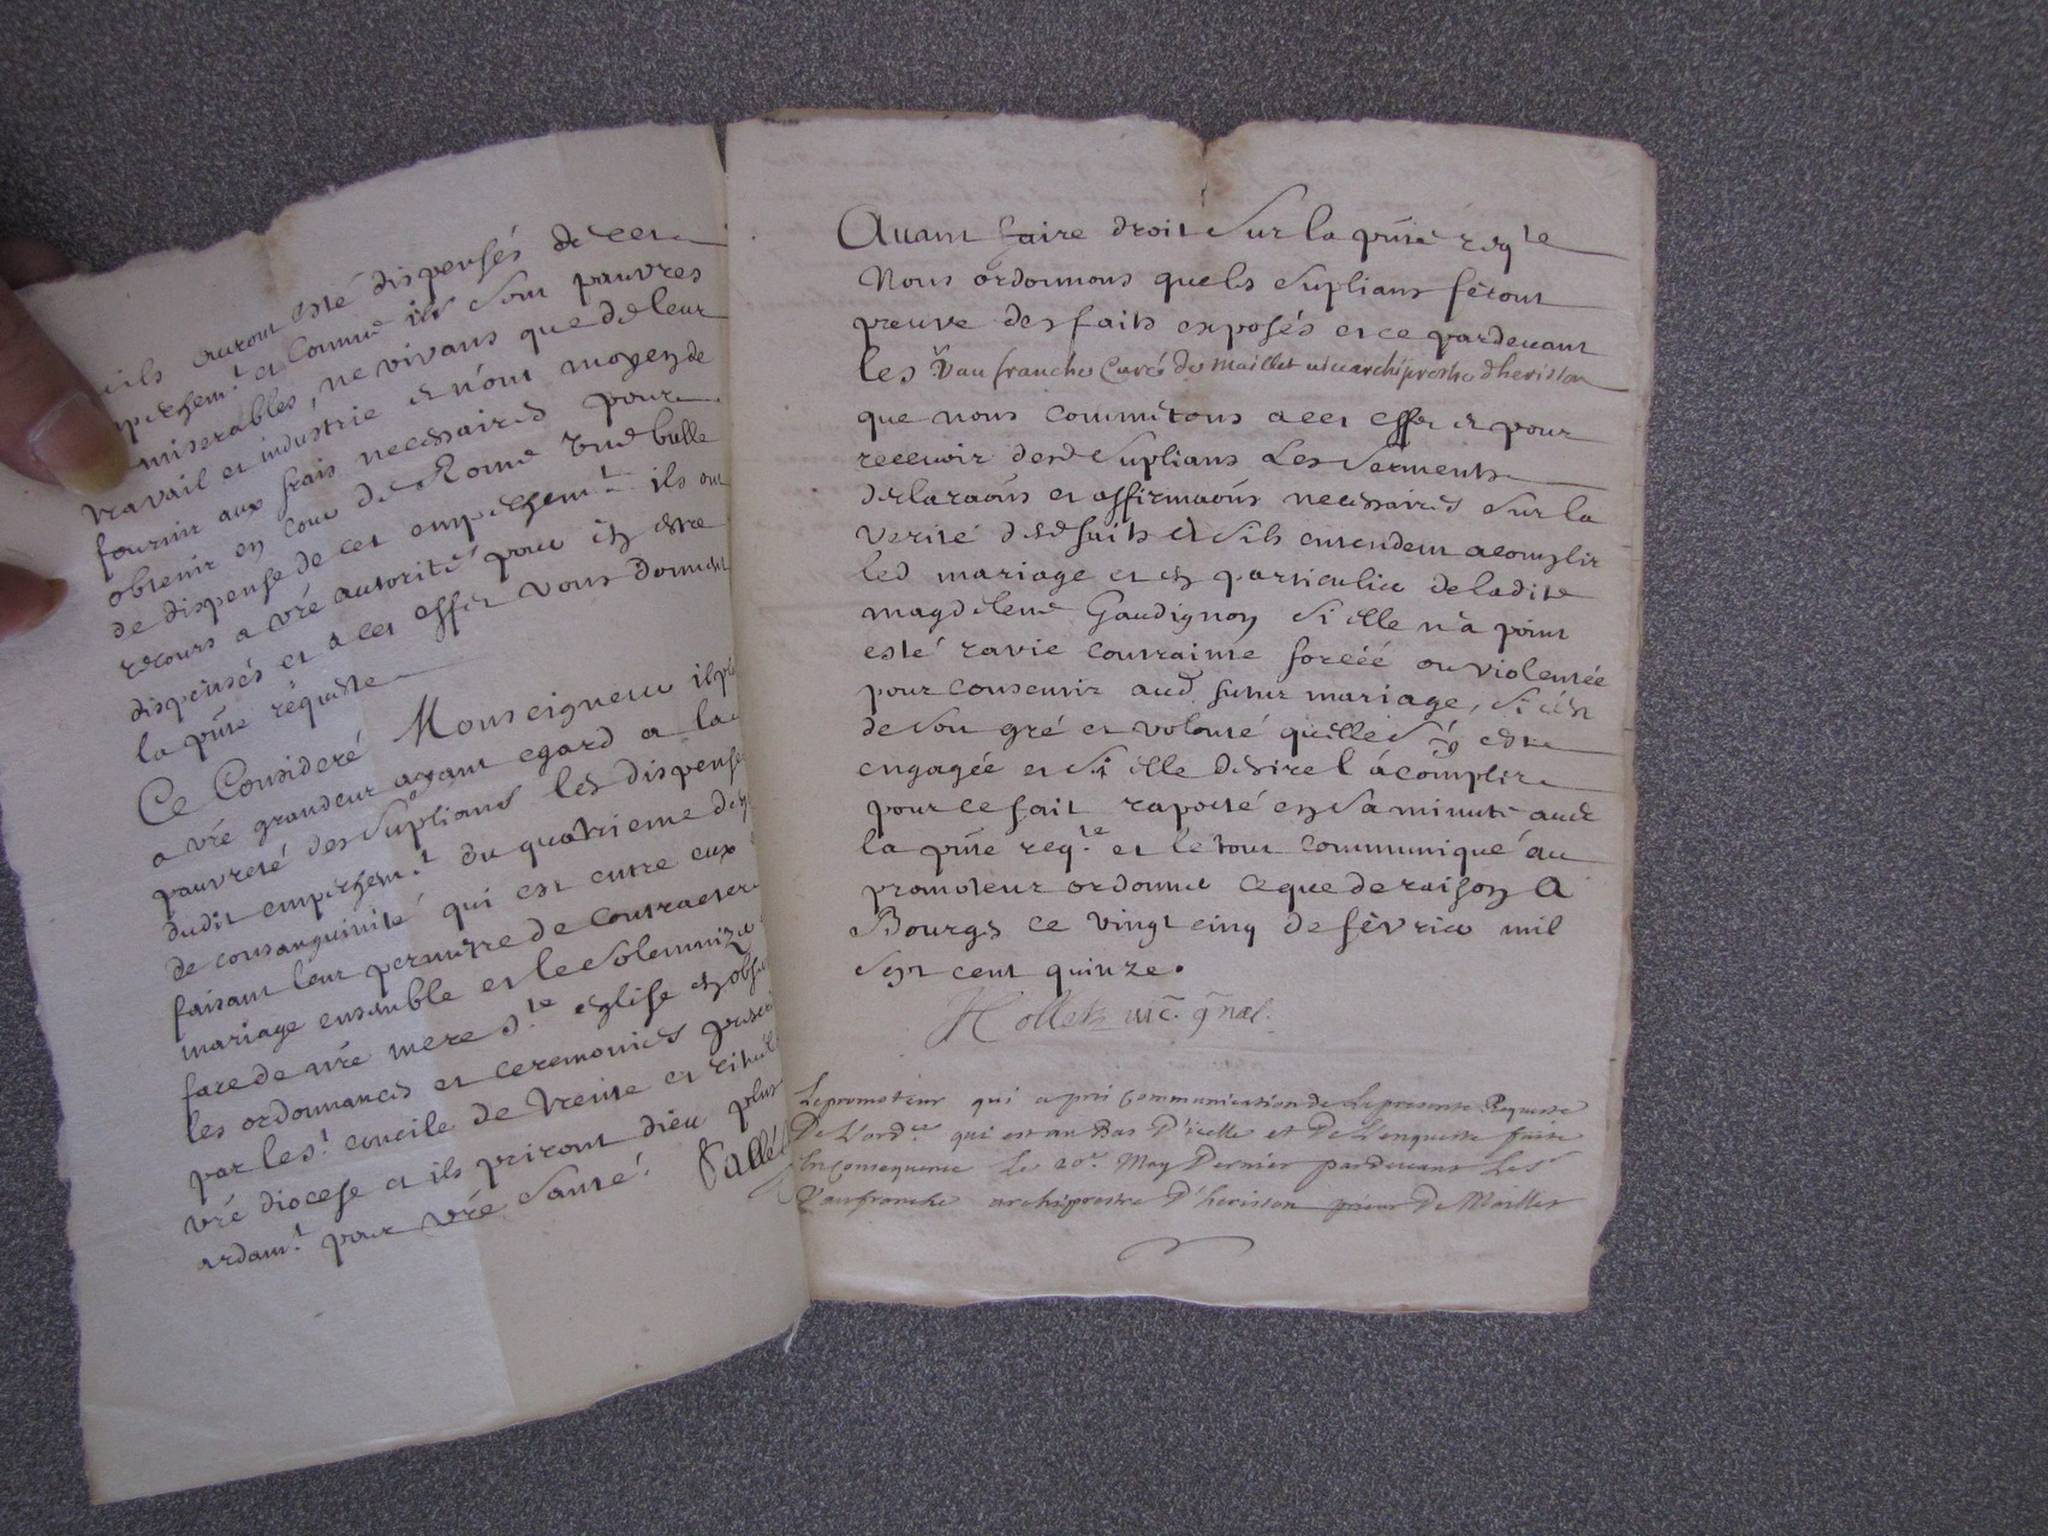 ils auront esté dispensés de cet
empeschemt et comme ils sont pauvres
miserables, ne vivans que de leur
travail et industrie et n'ont moyen de
fournir aux frais necessaires pour
obtenir en cour de Rome une bulle
de dispense de cet empeschemt ils ont
recours a vre autorité pour en estre
dispensés et a cet effet vous donnent
la pnte réqueste
Ce Consideré Monseigneur il
a vre grandeur ayant egard a la
pauvreté des Suplians les dispenser
dudit empeschemt du quatrieme
de consanguinité qui est entre eux
faisant leur permettre de contracter
mariage ensemble et le Solemnizer
face de nre mere Ste eglise en
les ordonnances et ceremonies
par le St concile de Trente et rituel
vre diocese et ils priront dieu plus
ardamt pour vre Santé. Sallé
Auant faire droit Sur la pnte reqte
Nous ordonnons que les Suplians feront
preuve des faits exposés et ce pardeuant
les Sr Vaufranche Curé de Maillet uicearchiprestre dherisson
que nous commetons a cet effet et pour
receuoir desd Suplians Les Serments
declaraons et affirmaons necessaires Sur la
verité desd faits et Sils entendent acomplir
led mariage et en particulier de ladite
magdelene Gaudignon Si elle n'a point
esté ravie contrainte forcée ou violentée
pour consentir aud futur mariage, Si c'est
de Son gré et volonté quelle S'y est
engagée et Si elle desire l'acomplir
pour ce fait raporté en Sa minute auec
la pnte reqte et le tout communiqué au
promoteur ordonner ce que de raison A
Bourges ce vingt cinq de février mil
Sept cent quinze.
Hollet uic. gnal.
Le promoteur qui a pris Communication de La presente Requeste
De L'ordce qui est au Bas D'icelle et De L'enqueste faite
En Consequence Le 20e May Dernier pardeuant Le Sr
Vaufranche archiprestre D'herisson prieur De Maillet